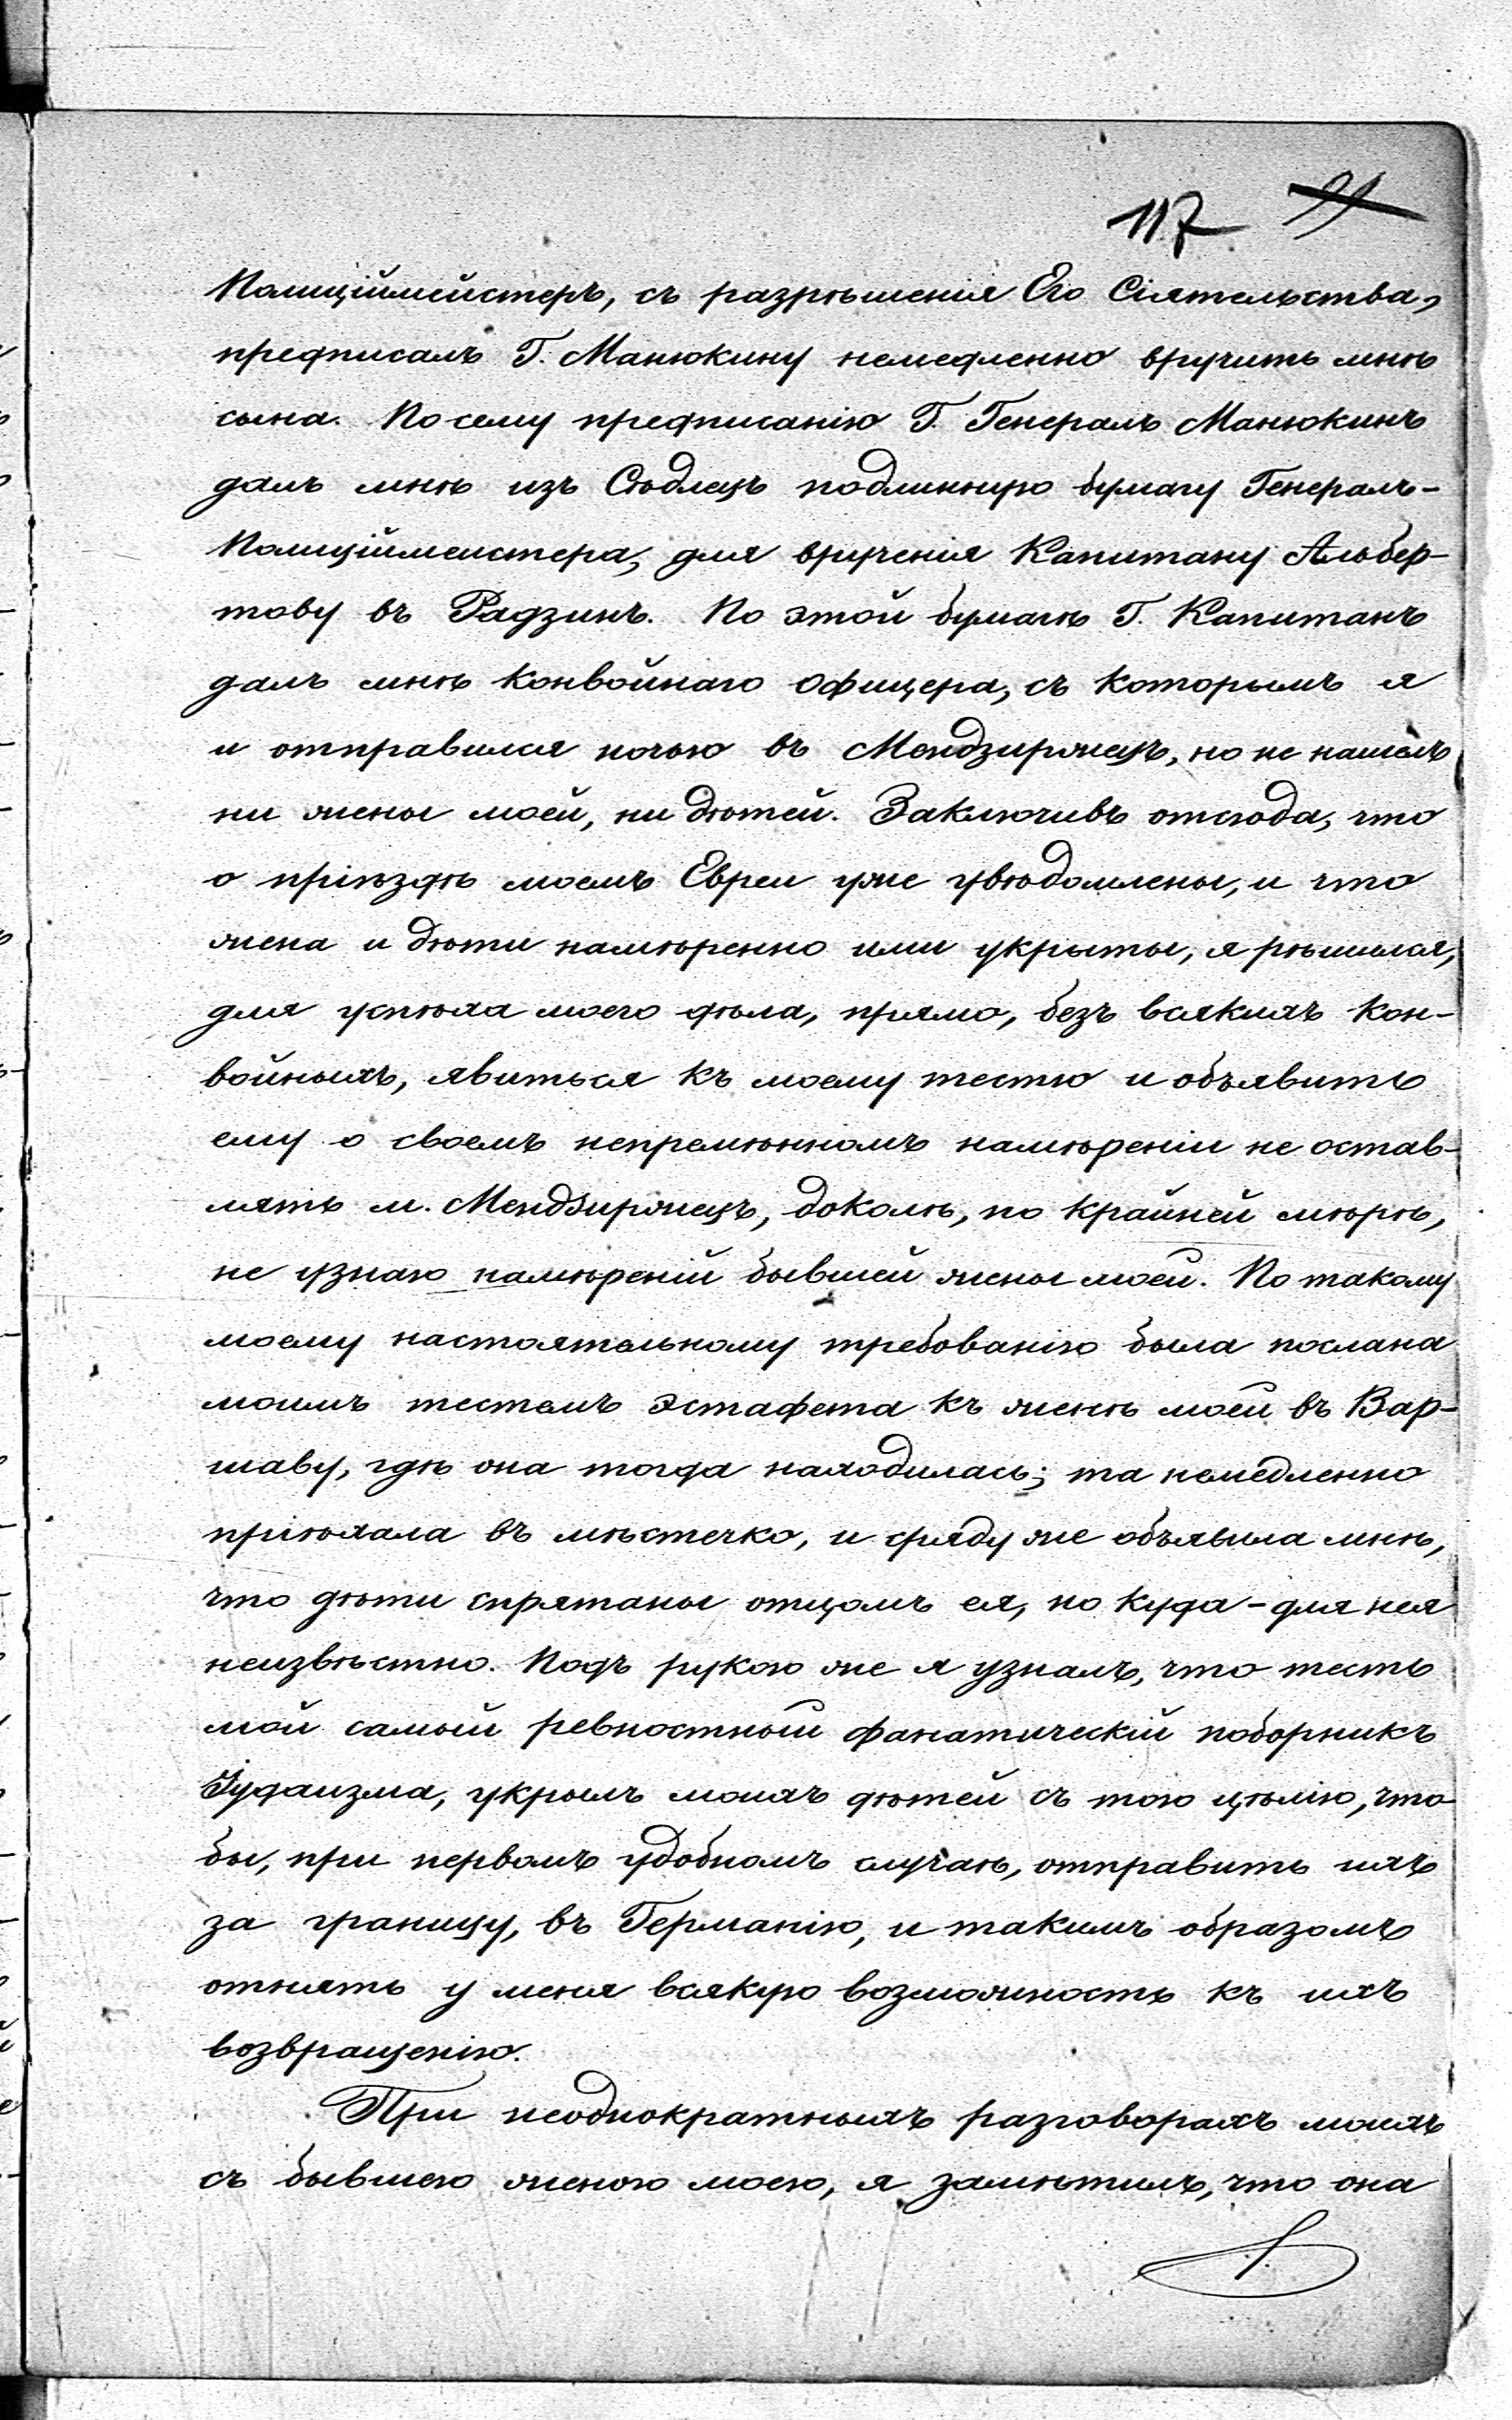 117 99
Полиціймейстеръ, съ разрѣшенія Его Сіятельства,
предписалъ Г. Манюкину немедленно вручить мнѣ
сына. По сему предписанію Г. Генералъ Манюкинъ
далъ мнѣ изъ Сѣдлецъ подлинную бумагу Генералъ-
Полиціймейстера, для врученія Капитану Альбер-
тову въ Радзинъ. По этой бумагѣ Г. Капитанъ
далъ мнѣ конвойнаго офицера, съ которымъ я
и отправился ночью въ Мендзиржецъ, но не нашелъ
ни жены моей, ни дѣтей. Заключивъ отсюда, что
о пріѣздѣ моемъ Евреи уже увѣдомлены, и что
жена и дѣти намѣренно ими укрыты, я рѣшился,
для успѣха моего дѣла, прямо, безъ всякихъ кон-
войныхъ, явиться къ моему тестю и объявить
ему о своемъ непремѣнномъ намѣреніи не остав-
лять м. Мендзиржецъ, доколѣ, по крайней мѣрѣ,
не узнаю намѣреній бывшей жены моей. По такому
моему настоятельному требованію была послана
моимъ тестемъ эстафета къ женѣ моей въ Вар-
шаву, гдѣ она тогда находилась; та немедленно
пріѣхала въ мѣстечко, и сряду же объявила мнѣ,
что дѣти спрятаны отцомъ ея, но куда - для нея
неизвѣстно. Подъ рукою же я узналъ, что тесть
мой самый ревностный фанатическій поборникъ
Іудаизма, укрылъ моихъ дѣтей съ тою цѣлію, что
бы, при первомъ удобномъ случаѣ, отправить ихъ
за границу, въ Германію, и такимъ образомъ
отнять у меня всякую возможность къ ихъ
возвращенію.
При неоднократныхъ разговорахъ моихъ
съ бывшею женою моею, я замѣтилъ, что она